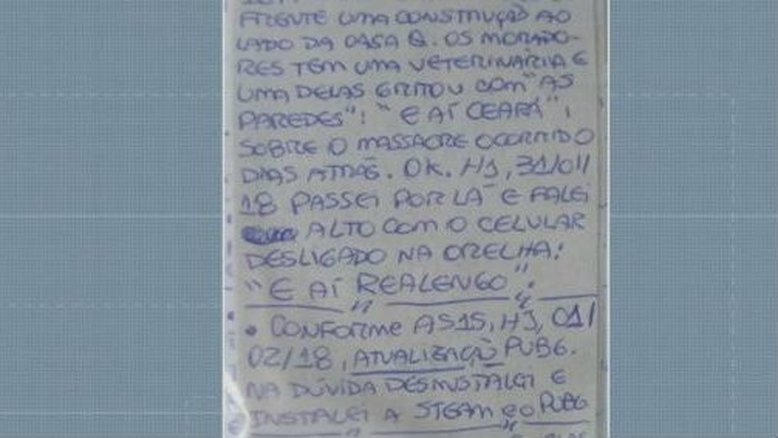 FRENTE UMA CONSTRUÇÃO AO
LADO DA CASA Q. OS MORADO-
RES TEM UMA VETERINÁRIA E
UMA DELAS GRITOU COM "AS
PAREDES": "E AÍ CEARÁ",
SOBRE O MASSACRE OCORRIDO
DIAS ATRÁS. OK. HJ, 31/01/
18 PASSEI POR LÁ E FALEI
ALTO COM O CELULAR
DESLIGADO NA ORELHA:
"E AÍ REALENGO".
• CONFORME AS15, HJ, 01/
02/18, ATUALIZAÇÃO PUBG.
NA DÚVIDA DESINSTALEI E
INSTALEI A STEAM e o PUBG